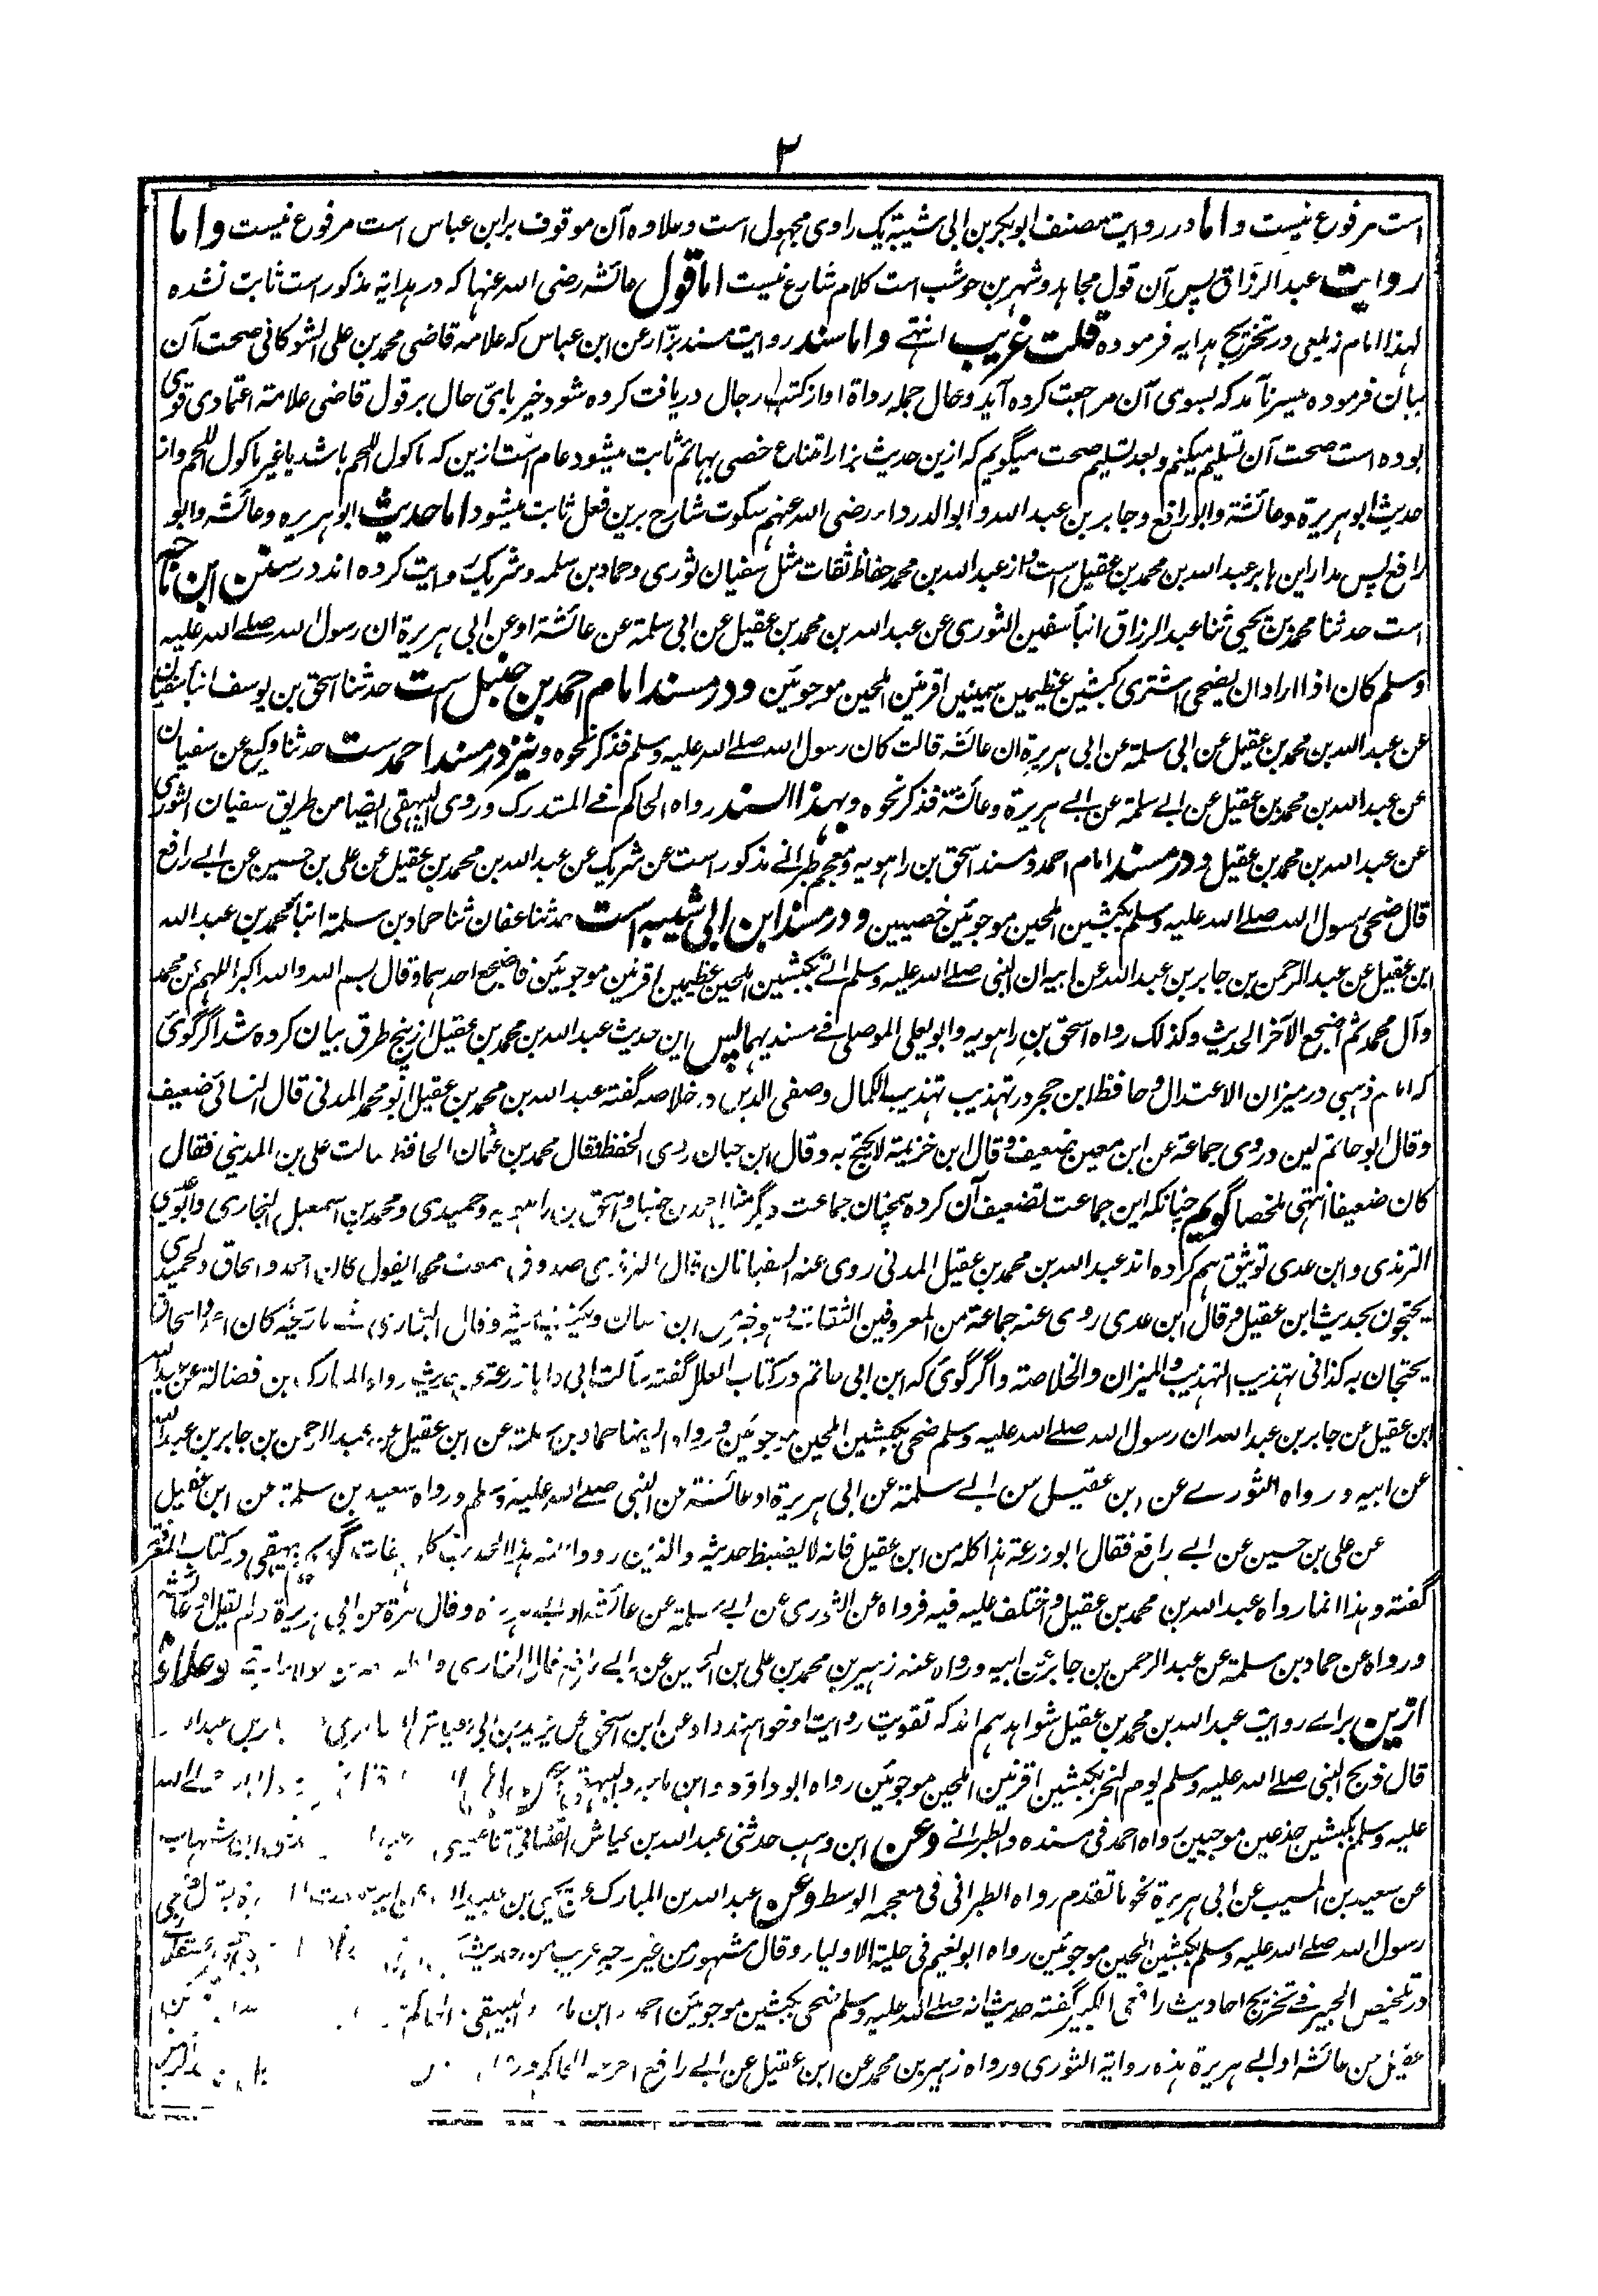 ۲
است مرفوع نیست و اما در روایت مصنف ابوبکر بن ابی شیبة یک راوی مجهول است و علاوه آن موقوف بر ابن عباس است مرفوع نیست و اما
روایت عبد الرزاق پس آن قول مجاهد و شهر بن حوشب است کلام شارع نیست اما قول عائشه رضی الله عنها که در هدایة مذکور است ثابت نشده
لهذا امام زیلعی در تخریج هدایه فرموده قلت غریب انتهے و اما سند روایت مسند بزار عن ابن عباس که علامه قاضی محمد بن علی الشوکانی صحت آن
بیان فرموده میسر نآمد که بسوی آن مراجعت کرده آید و حال جمله رواة او از کتب رجال دریافت کرده شود خیر باىّ حال بر قول قاضی علامة اعتمادی قوی
بوده است صحت آن تسلیم میکنم و بعد تسلیم صحت میگویم که ازین حدیث بزار امتناع خصی بهائم ثابت میشود عام است ازین که ماکول اللحم باشد یا غیر ماکول اللحم و از
حدیث ابو هریرة و عائشة و ابو رافع و جابر بن عبد الله و ابو الدرداء رضی الله عنهم سکوت شارح برین فعل ثابت میشود اما حدیث ابو هریره و عائشه و ابو
رافع پس مدار این ها بر عبد الله بن محمد بن عقیل است و از عبد الله بن محمد حفاظ ثقات مثل سفیان ثوری و حماد بن سلمه و شریک روایت کرده اند در سنن ابن ماجه
است حدثنا محمد بن یحیی ثنا عبد الرزاق انبأ سفین الثوری عن عبد الله بن محمد بن عقیل عن ابی سلمة عن عائشة او عن ابی هریرة ان رسول الله صلے الله علیه
وسلم کان اذا اراد ان یضحی اشتری کبشین عظیمین سمینین اقرنین املحین موجوئین و در مسند امام احمد بن حنبل است حدثنا اسحق بن یوسف انبأ سفیان
عن عبد الله بن محمد بن عقیل عن ابی سلمة عن ابی هریرة ان عائشه قالت کان رسول الله صلے الله علیه وسلم فذکر نحوه و نیز در مسند احمد ست حدثنا وکیع عن سفیان
عن عبد الله بن محمد بن عقیل عن ابے سلمة عن ابے هریرة و عائشة فذکر نحوه و بهذا السند رواه الحاکم فے المستدرک و روی البیهقی ایضا من طریق سفیان الثوری
عن عبد الله بن محمد بن عقیل و در مسند امام احمد و مسند اسحق بن راهویه و معجم طبرانے مذکور است عن شریک عن عبد الله بن محمد بن عقیل عن علی بن حسین عن ابے رافع
قال ضحی رسول الله صلے الله علیه وسلم بکبشین املحین موجوئین خصیین و در مسند ابن ابی شیبه است حدثنا عفان ثنا حماد بن سلمة انبأ محمد بن عبد الله
ابن عقیل عن عبد الرحمن بن جابر بن عبد الله عن ابیه ان النبی صلے الله علیه وسلم اتے بکبشین املحین عظیمین اقرنین موجوئین فاضجع احدهما و قال بسم الله و الله اکبر اللهم عن محمد
و آل محمد ثم اضجع الآخر الحدیث و کذلک رواه اسحق بن راهویه و ابو یعلی الموصلی فے مسندیهما پس این حدیث عبد الله بن محمد بن عقیل از پنج طرق بیان کرده شد اگر گوئی
که امام ذهبی در میزان الاعتدال و حافظ ابن حجر در تهذیب تهذیب الکمال و صفی الدین در خلاصه گفته عبد الله بن محمد بن عقیل ابو محمد المدنی قال النسائی ضعیف
و قال ابو حاتم لین و روی جماعة عن ابن معین تضعیفه و قال ابن خزیمة لا یحتج به و قال ابن حبان ردی الحفظ و قال محمد بن عثمان الحافظ سالت علی بن المدینی فقال
کان ضعیفا انتهی ملخصا گویم چنانکه این جماعت تضعیف آن کرده همچنان جماعت دیگر مثل احمد بن حنبل و اسحق بن راهویه و حمیدی و محمد بن اسمعیل البخاری و ابو عیسی
الترمذی و ابن عدی توثیق هم کرده اند عبد الله بن محمد بن عقیل المدنی روی عنه السفیانان قال الترمذی صدوق سمعت محمدا یقول کان احمد و اسحاق و الحمیدی
یحتجون بحدیث ابن عقیل و قال ابن عدی روی عنه جماعة من المعروفین الثقات و هو خیر من ابن سمعان و یکتب حدیثه و قال البخاری فے تاریخه کان احمد و اسحاق
یحتجان به کذا فی تهذیب التهذیب و المیزان و الخلاصة و اگر گوئی که ابن ابی حاتم در کتاب العلل گفته سألت ابی و ابا زرعة عن حدیث رواه المبارک بن فضالة عن عبد الله
ابن عقیل عن جابر بن عبد الله ان رسول الله صلے الله علیه وسلم ضحی بکبشین املحین موجوئین و رواه ایضا حماد بن سلمة عن ابن عقیل عن عبد الرحمن بن جابر بن عبد الله
عن ابیه و رواه الثورے عن ابن عقیل عن ابے سلمة عن ابی هریرة او عائشة عن النبی صلے الله علیه وسلم و رواه سعید بن سلمة عن ابن عقیل
عن علی بن حسین عن ابے رافع فقال ابو زرعة هذا کله من ابن عقیل فانه لا یضبط حدیثه و الذین رووا عنه هذا الحدیث کلهم ثقات بیهقی در کتاب المعرفة
گفته و هذا انما رواه عبد الله بن محمد بن عقیل و اختلف علیه فیه فرواه عن الثوری عن ابے سلمة عن عائشة او ابے هریرة و قال مرة عن ابی هریرة و لم یقل او عائشة
و رواه عن حماد بن سلمة عن عبد الرحمن بن جابر عن ابیه و رواه عنه زهیر بن محمد بن علی بن الحسین عن ابے رافع قال البخاری و علاوه
ازین براے روایت عبد الله بن محمد بن عقیل شواهد هم اند که تقویت روایت او خواهند داد عن ابن اسحق عن یزید بن ابی جابر بن عبد الله
قال ذبح النبی صلے الله علیه وسلم یوم النحر بکبشین اقرنین املحین موجوئین رواه ابو داؤد و ابن ماجه و البیهقی
علیه وسلم بکبشین جذعین موجیین رواه احمد فی مسنده و الطبرانے و عن ابن وهب حدثنی عبد الله بن عیاش القتبانی ابن شهاب
عن سعید بن المسیب عن ابی هریرة نحو ما تقدم رواه الطبرانی فی معجمه الوسط و عن عبد الله بن المبارک عن یحیی بن عبید الله عن ابیه
رسول الله صلے الله علیه وسلم بکبشین املحین موجوئین رواه ابو نعیم فی حلیة الاولیاء و قال مشهور من غیر وجه غریب من حدیث
در تلخیص الحبیر فے تخریج احادیث رافعی الکبیر گفته حدیث انه صلے الله علیه وسلم ضحی بکبشین موجوئین احمد و ابن ماجه و البیهقی و الحاکم
عقیل عن عائشه او ابے هریرة هذه روایة الثوری و رواه زهیر بن محمد عن ابن عقیل عن ابے رافع اخرجه الحاکم